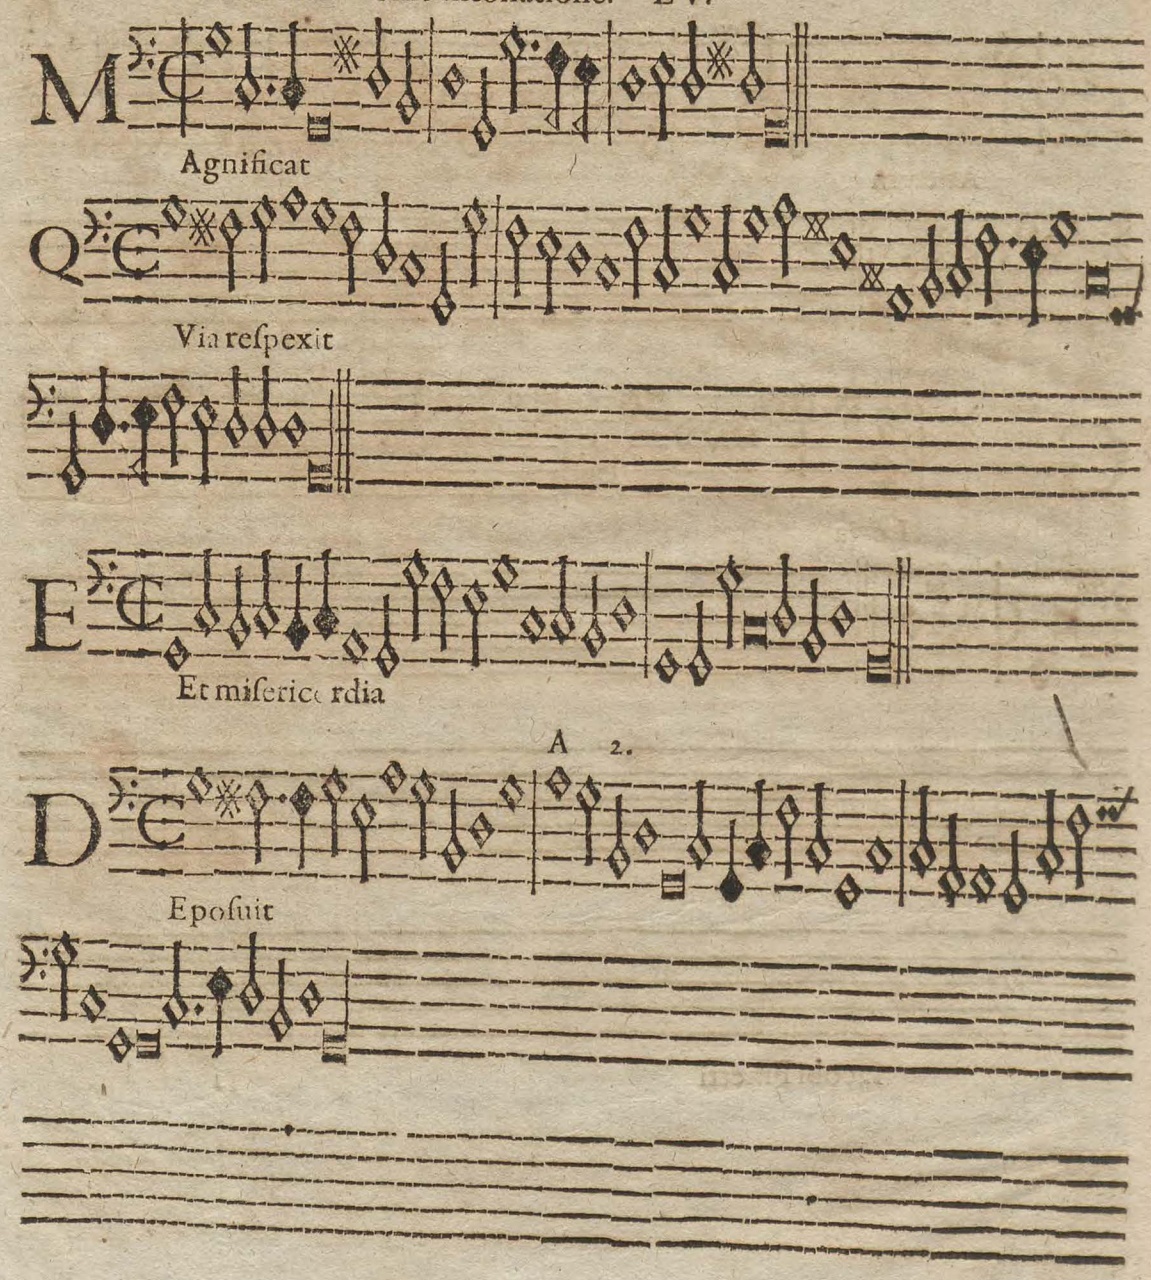 M
Agnificat
Q
Via reſpexit
E
Et miſerico rdia
A 2.
D
Epoſuit